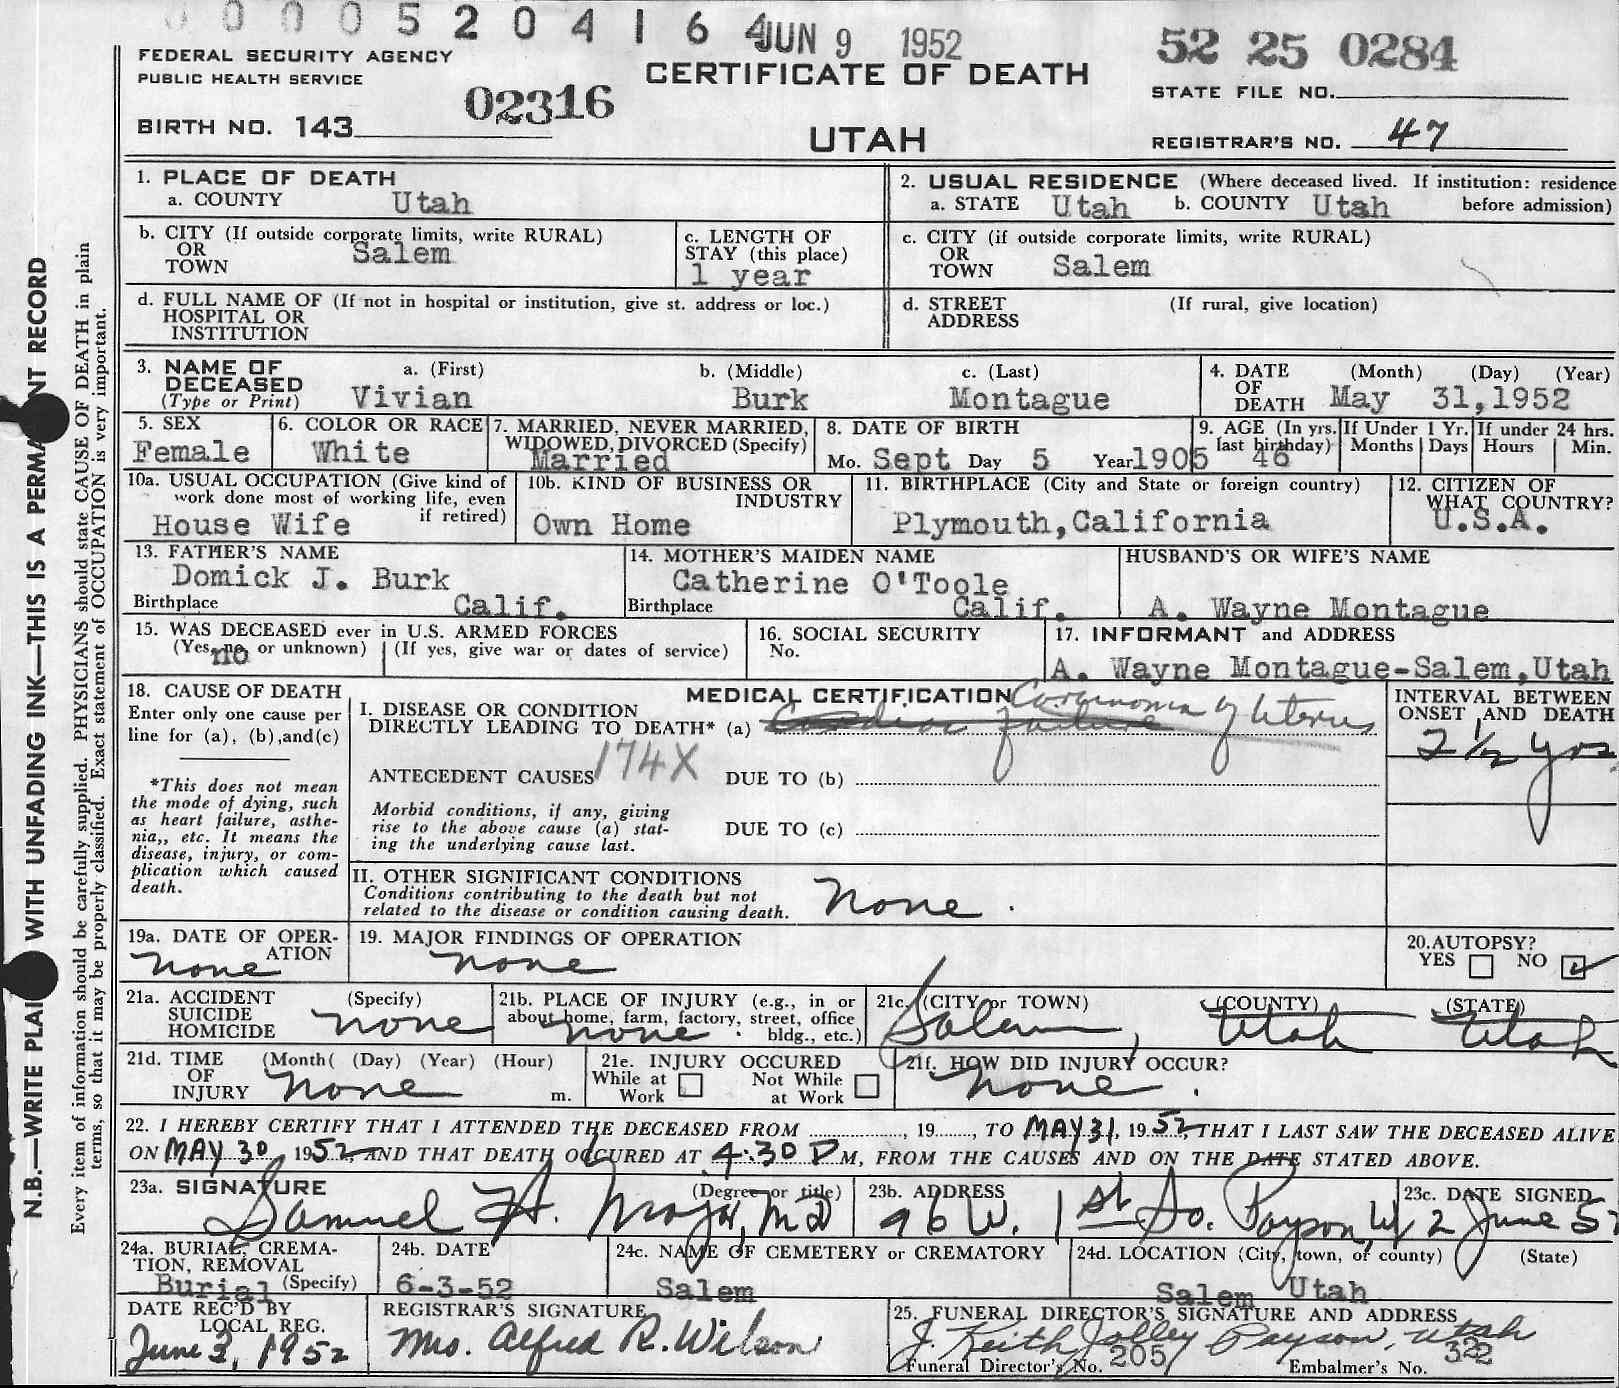 0 0 0 5 2 0 4 1 6 4 JUN 9 1952
52 25 0284
FEDERAL SECURITY AGENCY
PUBLIC HEALTH SERVICE
CERTIFICATE OF DEATH
STATE FILE NO.
02316
BIRTH NO. 143
UTAH
REGISTRAR'S NO. 47
1. PLACE OF DEATH
a. COUNTY Utah
2. USUAL RESIDENCE (Where deceased lived. If institution: residence
a. STATE Utah b. COUNTY Utah before admission)
b. CITY (If outside corporate limits, write RURAL)
OR
TOWN Salem
c. LENGTH OF
STAY (this place)
1 year
c. CITY (if outside corporate limits, write RURAL)
OR
TOWN Salem
d. FULL NAME OF (If not in hospital or institution, give st. address or loc.)
HOSPITAL OR
INSTITUTION
d. STREET (If rural, give location)
ADDRESS
3. NAME OF
DECEASED
(Type or Print)
a. (First) b. (Middle) c. (Last)
Vivian Burk Montague
4. DATE (Month) (Day) (Year)
OF
DEATH May 31,1952
5. SEX
Female
6. COLOR OR RACE
White
7. MARRIED, NEVER MARRIED,
WIDOWED, DIVORCED (Specify)
Married
8. DATE OF BIRTH
Mo. Sept Day 5 Year 1905
9. AGE (In yrs.
last birthday)
46
If Under 1 Yr.
Months Days
If under 24 hrs.
Hours Min.
10a. USUAL OCCUPATION (Give kind of
work done most of working life, even
if retired)
House Wife
10b. KIND OF BUSINESS OR
INDUSTRY
Own Home
11. BIRTHPLACE (City and State or foreign country)
Plymouth,California
12. CITIZEN OF
WHAT COUNTRY?
U.S.A.
13. FATHER'S NAME
Domick J. Burk
Birthplace Calif.
14. MOTHER'S MAIDEN NAME
Catherine O'Toole
Birthplace Calif.
HUSBAND'S OR WIFE'S NAME
A. Wayne Montague
15. WAS DECEASED ever in U.S. ARMED FORCES
(Yes, no, or unknown) (If yes, give war or dates of service)
no
16. SOCIAL SECURITY
No.
17. INFORMANT and ADDRESS
A. Wayne Montague-Salem,Utah
18. CAUSE OF DEATH
Enter only one cause per
line for (a), (b),and(c)
*This does not mean
the mode of dying, such
as heart failure, asthe-
nia,, etc. It means the
disease, injury, or com-
plication which caused
death.
MEDICAL CERTIFICATION
I. DISEASE OR CONDITION
DIRECTLY LEADING TO DEATH* (a) Cardiac failure Carcinoma of Uterus
ANTECEDENT CAUSES 174X DUE TO (b)
Morbid conditions, if any, giving
rise to the above cause (a) stat-
ing the underlying cause last.
DUE TO (c)
INTERVAL BETWEEN
ONSET AND DEATH
2 1/2 yrs
II. OTHER SIGNIFICANT CONDITIONS
Conditions contributing to the death but not
related to the disease or condition causing death.
None.
19a. DATE OF OPER-
ATION
none
19. MAJOR FINDINGS OF OPERATION
none
20. AUTOPSY?
YES NO
21a. ACCIDENT (Specify)
SUICIDE
HOMICIDE none
21b. PLACE OF INJURY (e.g., in or
about home, farm, factory, street, office
bldg., etc.)
none
21c. (CITY or TOWN) (COUNTY) (STATE)
Salem, Utah Utah
21d. TIME (Month( (Day) (Year) (Hour)
OF
INJURY none m.
21e. INJURY OCCURED
While at Work
Not While at Work
21f. HOW DID INJURY OCCUR?
none.
22. I HEREBY CERTIFY THAT I ATTENDED THE DECEASED FROM , 19 , TO MAY 31, 1952, THAT I LAST SAW THE DECEASED ALIVE
ON MAY 30, 1952, AND THAT DEATH OCCURED AT 4:30 P M, FROM THE CAUSES AND ON THE DATE STATED ABOVE.
23a. SIGNATURE (Degree or title)
Samuel H. Major, MD
23b. ADDRESS
96 W. 1st So. Payson, U
23c. DATE SIGNED
2 June 52
24a. BURIAL, CREMA-
TION, REMOVAL
(Specify)
Burial
24b. DATE
6-3-52
24c. NAME OF CEMETERY or CREMATORY
Salem
24d. LOCATION (City, town, or county) (State)
Salem Utah
DATE REC'D BY
LOCAL REG.
June 3, 1952
REGISTRAR'S SIGNATURE
Mrs. Alfred R. Wilson
25. FUNERAL DIRECTOR'S SIGNATURE AND ADDRESS
J. Keith Jolley Payson, Utah
Funeral Director's No. 205 Embalmer's No. 322
N.B.—WRITE PLAI WITH UNFADING INK—THIS IS A PERMA NT RECORD
Every item of information should be carefully supplied. PHYSICIANS should state CAUSE OF DEATH in plain
terms, so that it may be properly classified. Exact statement of OCCUPATION is very important.